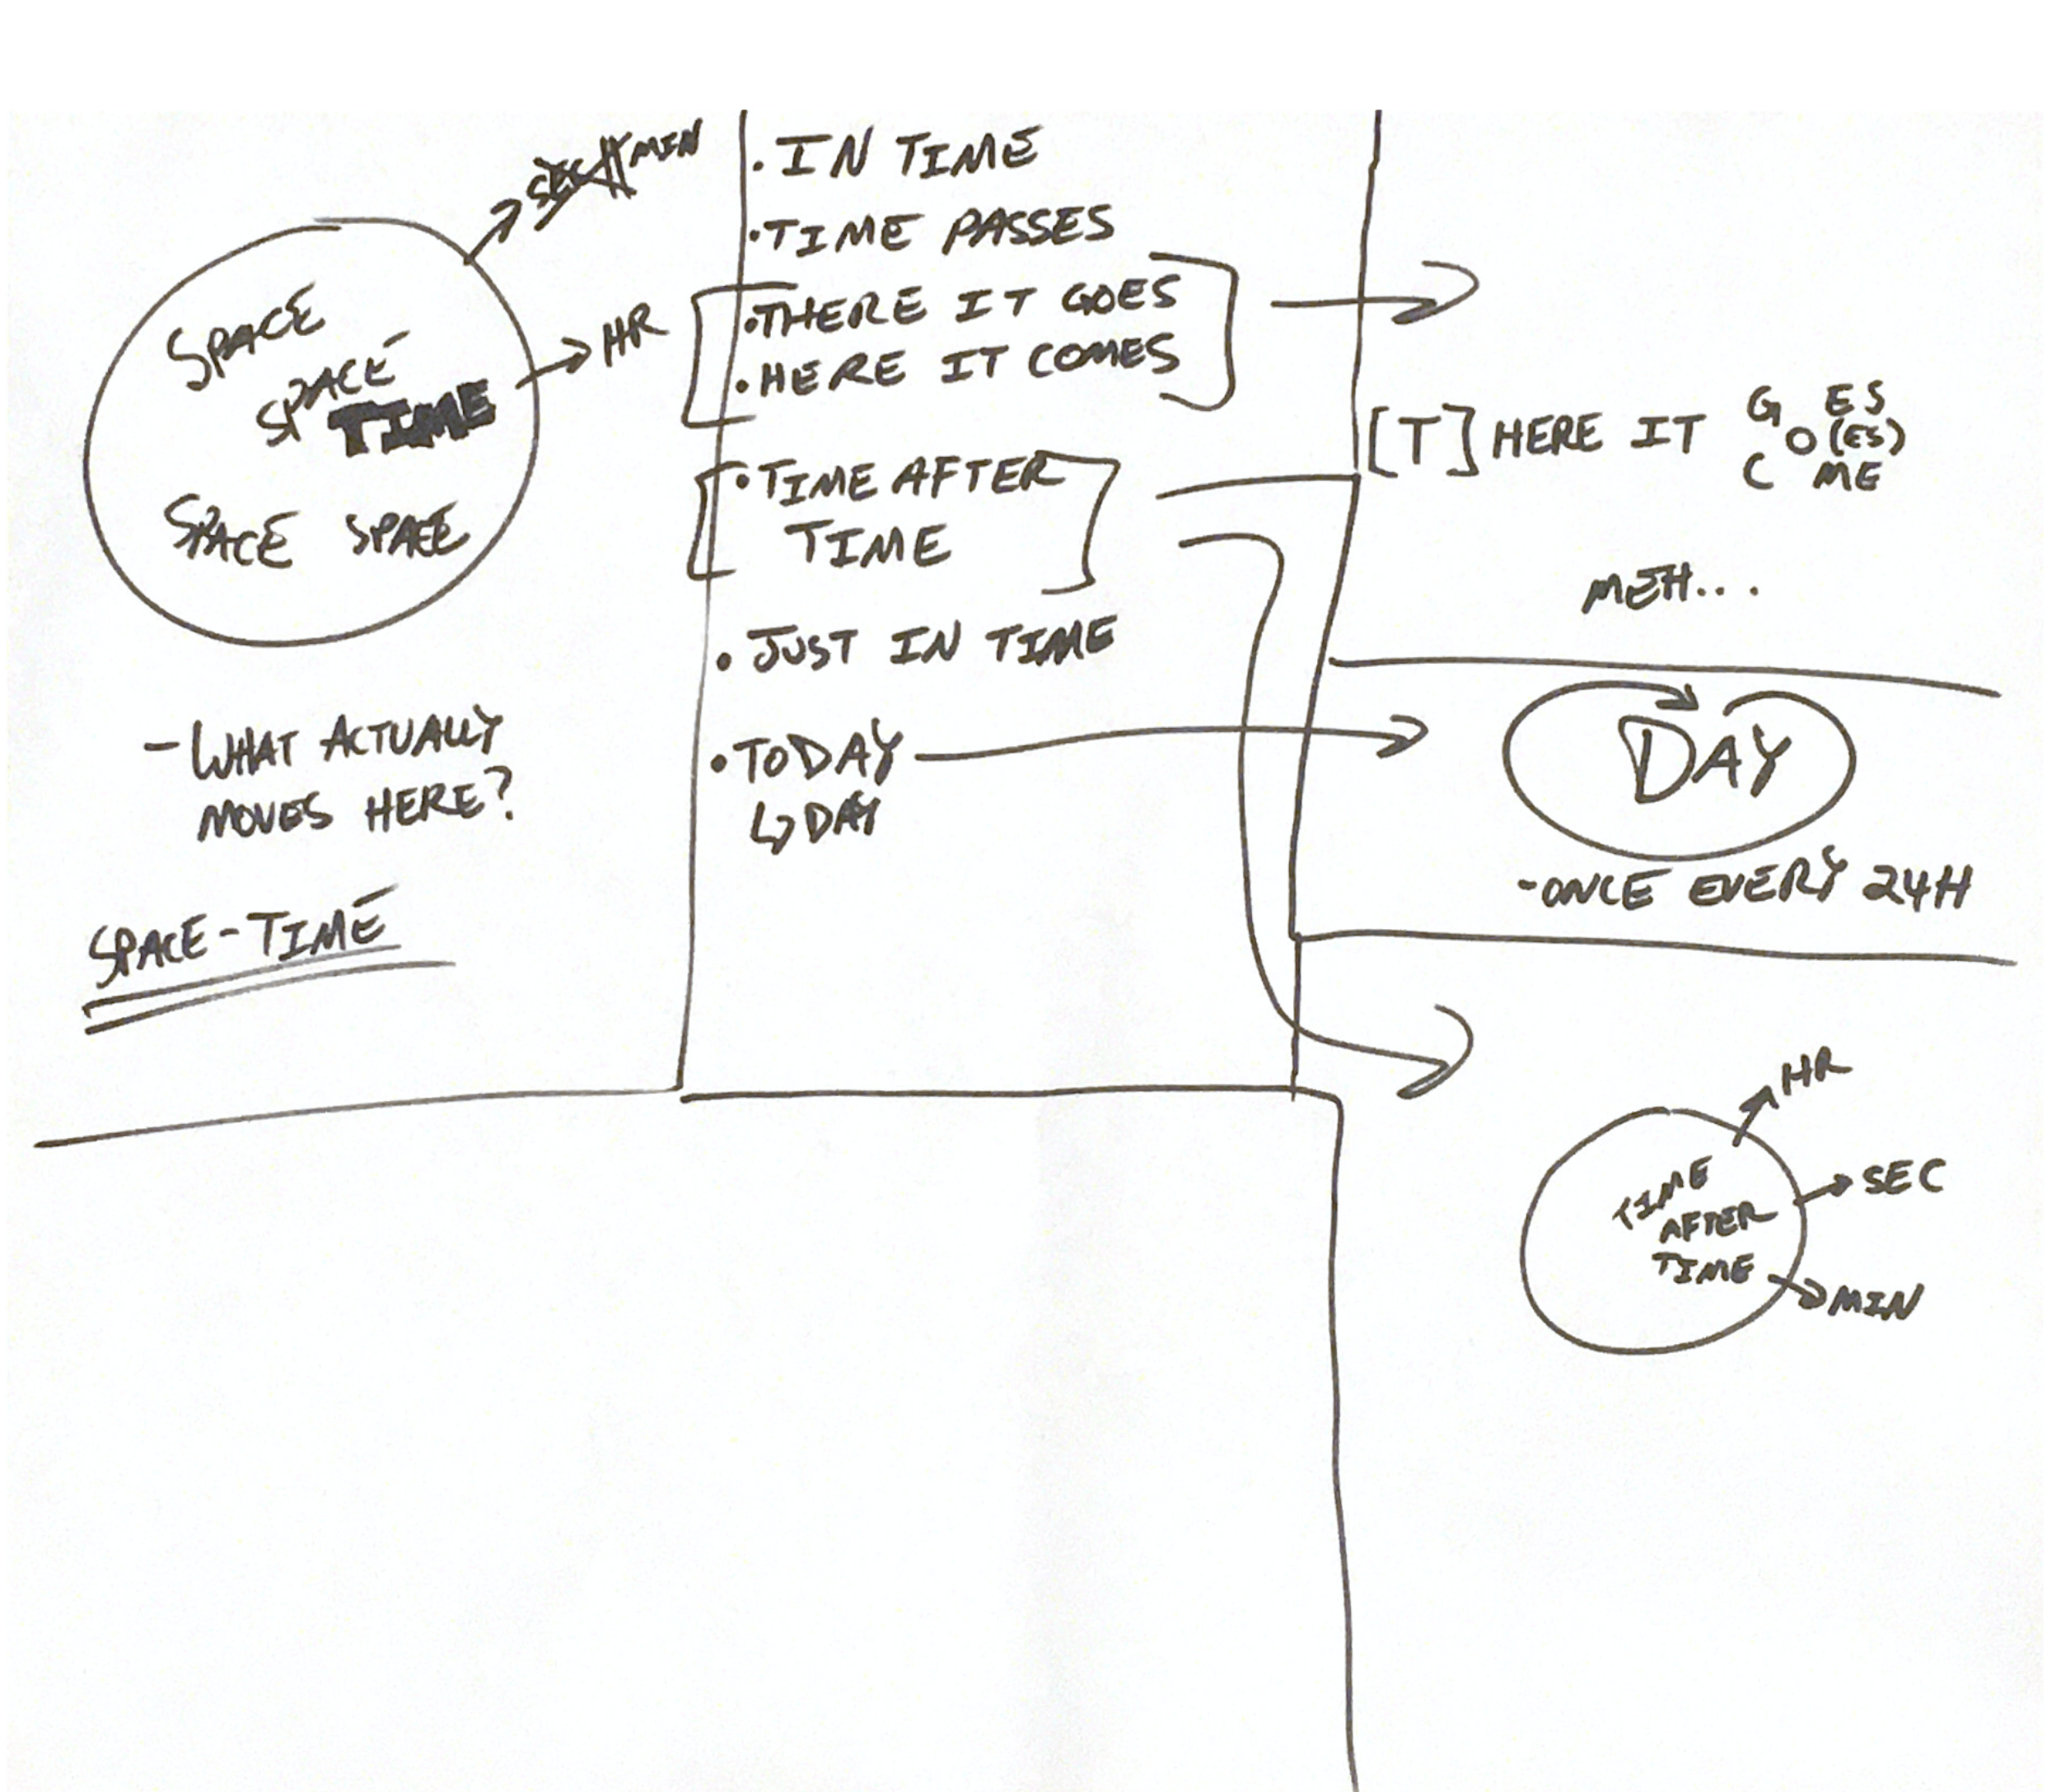 SEC MIN
HR
SPACE
SPACE
TIME
SPACE SPACE
- WHAT ACTUALLY
MOVES HERE?
SPACE-TIME
• IN TIME
• TIME PASSES
• THERE IT GOES
• HERE IT COMES
• TIME AFTER
TIME
• JUST IN TIME
• TODAY
↳ DAY
[T] HERE IT G ES
O (ES)
C ME
MEH...
DAY
- ONCE EVERY 24H
HR
SEC
MIN
TIME
AFTER
TIME